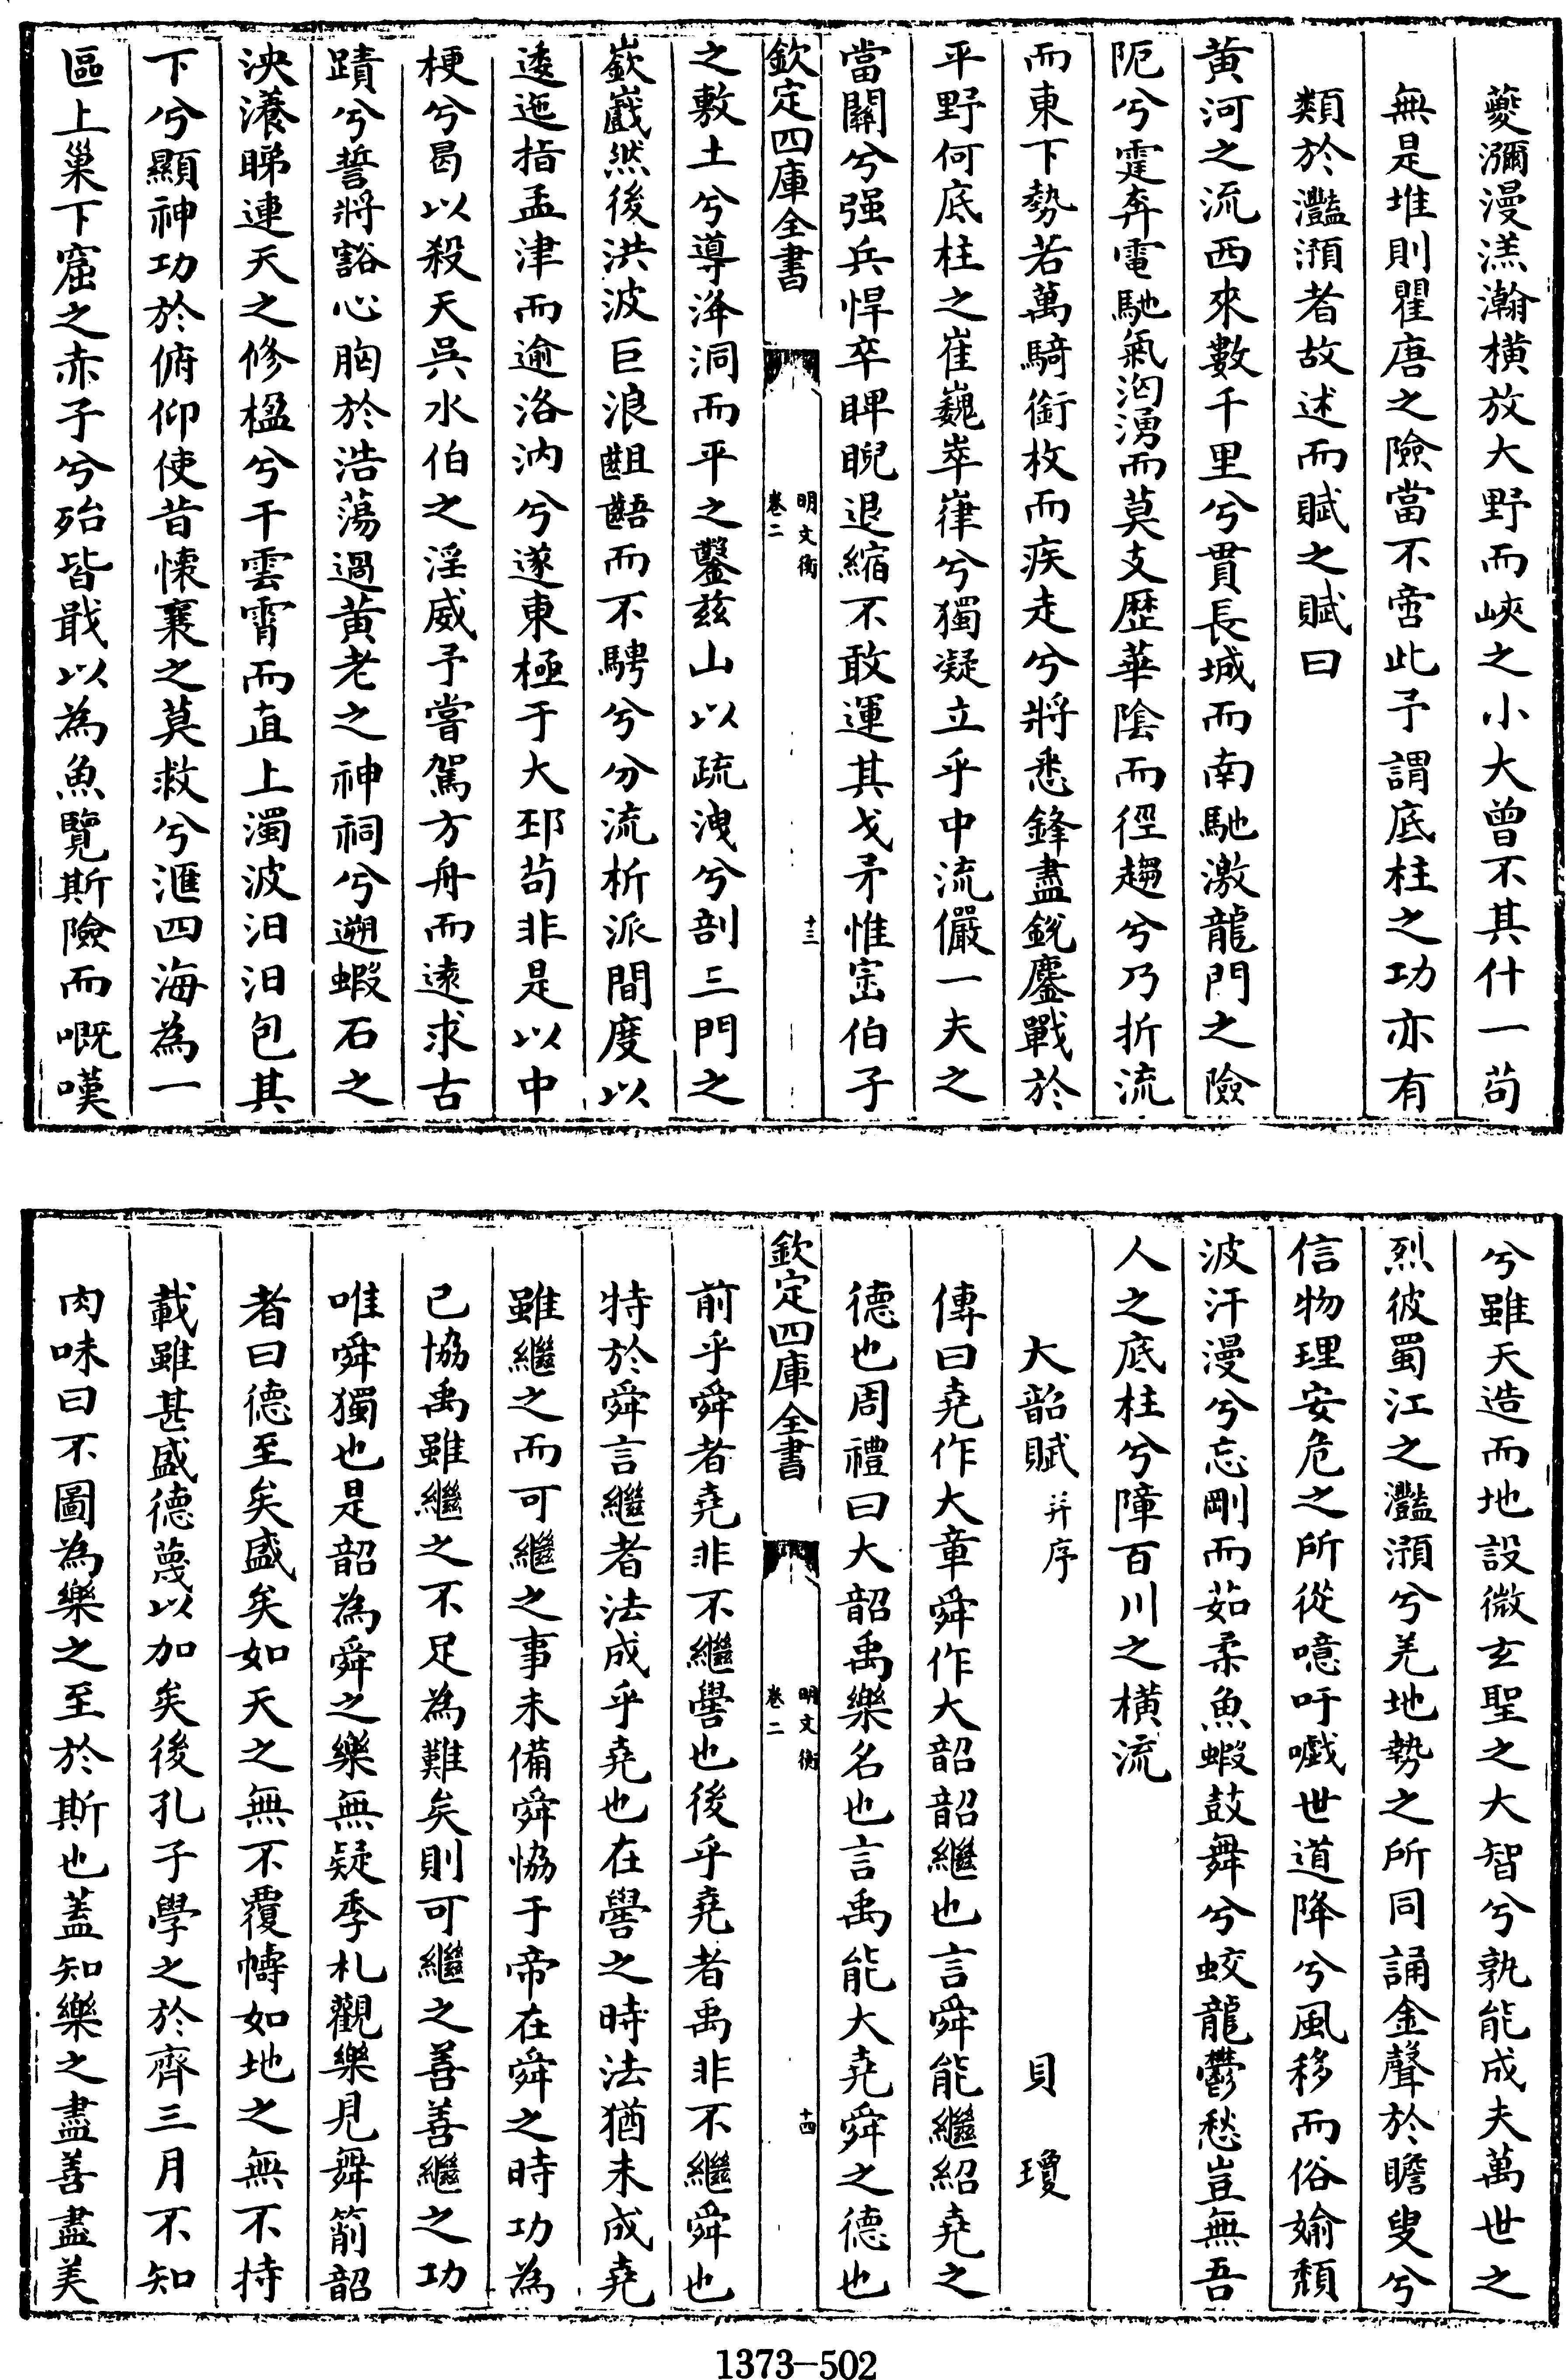 夔瀰漫漾瀚横放大野而峽之小大曾不其什一茍
無是堆則瞿唐之險當不啻此予謂底柱之功亦有
類於灩澦者故述而賦之賦曰
黄河之流西來數千里兮貫長城而南馳激龍門之險
阨兮霆奔電馳氣洶湧而莫支歴華隂而徑趨兮乃折流
而東下勢若萬騎銜枚而疾走兮將悉鋒盡鋭鏖戰於
平野何底柱之崔巍崒嵂兮獨凝立乎中流儼一夫之
當關兮强兵悍卒睥睨退縮不敢運其戈矛惟宻伯子
欽定四庫全書
明文衡
卷二
十三
之敷土兮導洚洞而平之鑿兹山以疏洩兮剖三門之
嶔巇然後洪波巨浪齟齬而不騁兮分流析派間度以
逶迤指孟津而逾洛汭兮遂東極于大邳茍非是以中
梗兮曷以殺天呉水伯之淫威予嘗駕方舟而逺求古
蹟兮誓將豁心胸於浩蕩過黄老之神祠兮遡蝦石之
泱瀁睇連天之修楹兮干雲霄而直上濁波汨汨包其
下兮顯神功於俯仰使昔懐襄之莫救兮滙四海為一
區上巢下窟之赤子兮殆皆戢以為魚覽斯險而嘅嘆
兮雖天造而地設微玄聖之大智兮孰能成夫萬世之
烈彼蜀江之灩澦兮羌地勢之所同誦金聲於瞻叟兮
信物理安危之所從噫吁嚱世道降兮風移而俗媮頽
波汗漫兮忘剛而茹柔魚蝦鼓舞兮蛟龍鬱愁豈無吾
人之底柱兮障百川之横流
大韶賦并序
貝瓊
傳曰堯作大章舜作大韶韶繼也言舜能繼紹堯之
德也周禮曰大韶禹樂名也言禹能大堯舜之德也
欽定四庫全書
明文衡
卷二
十四
前乎舜者堯非不繼嚳也後乎堯者禹非不繼舜也
特於舜言繼者法成乎堯也在嚳之時法猶未成堯
雖繼之而可繼之事未備舜恊于帝在舜之時功為
已協禹雖繼之不足為難矣則可繼之善善繼之功
唯舜獨也是韶為舜之樂無疑季札觀樂見舞箾韶
者曰德至矣盛矣如天之無不覆幬如地之無不持
載雖甚盛德蔑以加矣後孔子學之於齊三月不知
肉味曰不圖為樂之至於斯也蓋知樂之盡善盡美
1373-502